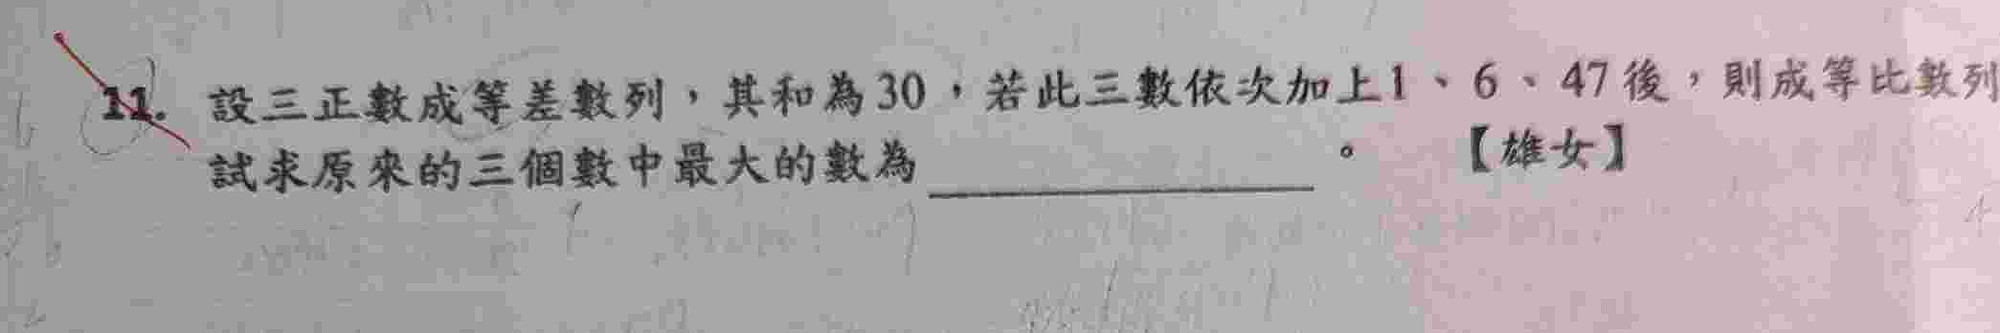 11. 設三正數成等差數列，其和為30，若此三數依次加上1、6、47後，則成等比數列
試求原來的三個數中最大的數為＿＿＿＿＿＿。 【雄女】